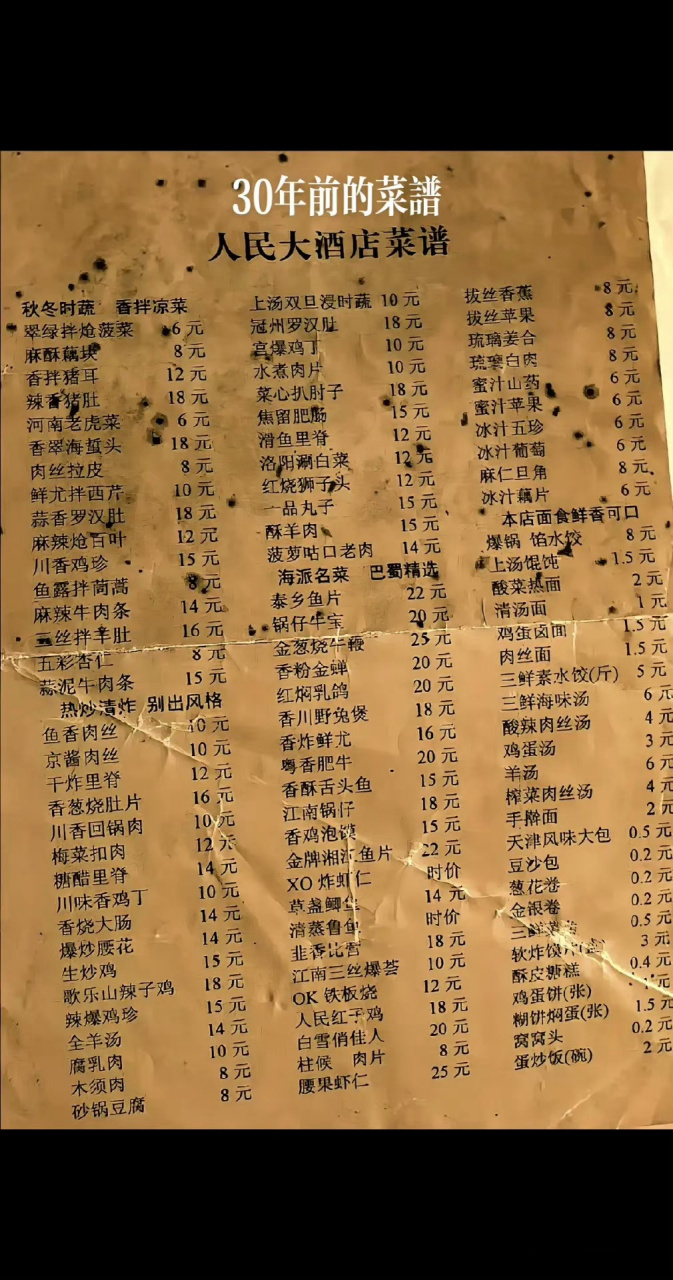 30年前的菜譜
人民大酒店菜谱
秋冬时蔬 香拌凉菜
翠绿拌炝菠菜 6元
麻酥藕块 8元
香拌猪耳 12元
辣香猪肚 18元
河南老虎菜 6元
香翠海蜇头 18元
肉丝拉皮 8元
鲜尤拌西芹 10元
蒜香罗汉肚 18元
麻辣炝百叶 12元
川香鸡珍 15元
鱼露拌茼蒿 8元
麻辣牛肉条 14元
三丝拌羊肚 16元
五彩杏仁 8元
蒜泥牛肉条 15元
热炒清炸 别出风格
鱼香肉丝 10元
京酱肉丝 10元
干炸里脊 12元
香葱烧肚片 16元
川香回锅肉 10元
梅菜扣肉 12元
糖醋里脊 14元
川味香鸡丁 10元
香烧大肠 14元
爆炒腰花 14元
生炒鸡 15元
歌乐山辣子鸡 18元
辣爆鸡珍 15元
全羊汤 14元
腐乳肉 10元
木须肉 8元
砂锅豆腐 8元
上汤双旦浸时蔬 10元
冠州罗汉肚 18元
宫爆鸡丁 10元
水煮肉片 10元
菜心扒肘子 18元
焦留肥肠 15元
滑鱼里脊 12元
洛阳涮白菜 12元
红烧狮子头 12元
一品丸子 15元
酥羊肉 15元
菠萝咕口老肉 14元
海派名菜 巴蜀精选
泰乡鱼片 22元
锅仔牛宝 20元
金葱烧牛鞭 25元
香粉金蝉 20元
红焖乳鸽 20元
香川野兔煲 18元
香炸鲜尤 16元
粤香肥牛 20元
香酥舌头鱼 15元
江南锅仔 18元
香鸡泡馍 15元
金牌湘江鱼片 22元
XO炸虾仁 时价
草盏鲫鱼 14元
清蒸鲁鱼 时价
韭香比管 18元
江南三丝爆荟 10元
OK铁板烧 12元
人民红干鸡 18元
白雪俏佳人 20元
柱候 肉片 8元
腰果虾仁 25元
拔丝香蕉 8元
拔丝苹果 8元
琉璃姜合 8元
琉璃白肉 8元
蜜汁山药 6元
蜜汁苹果 6元
冰汁五珍 6元
冰汁葡萄 6元
麻仁旦角 8元
冰汁藕片 6元
本店面食鲜香可口
爆锅 馅水饺 8元
上汤馄饨 1.5元
酸菜热面 2元
清汤面 1元
鸡蛋卤面 1.5元
肉丝面 1.5元
三鲜素水饺(斤) 5元
三鲜海味汤 6元
酸辣肉丝汤 4元
鸡蛋汤 3元
羊汤 6元
榨菜肉丝汤 4元
手擀面 2元
天津风味大包 0.5元
豆沙包 0.2元
葱花卷 0.2元
金银卷 0.2元
三鲜 0.5元
软炸馍片 3元
酥皮糖糕 0.4元
鸡蛋饼(张) 元
糊饼焖蛋(张) 1.5元
窝窝头 0.2元
蛋炒饭(碗) 2元